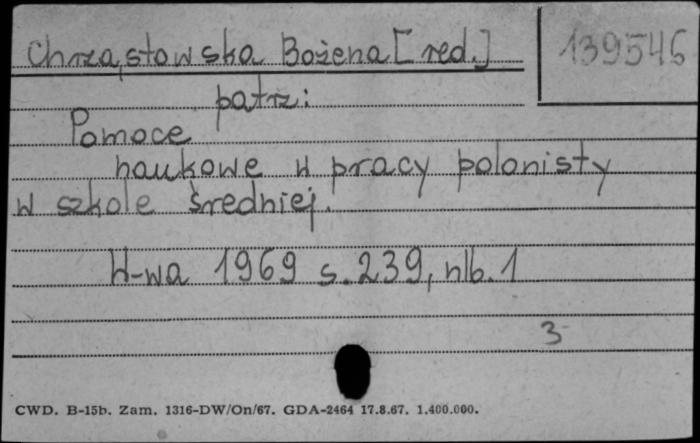 Chrząstowska Bożena [red.]
139546
patrz:
Pomoce
naukowe w pracy polonisty
w szkole średniej.
W-wa 1969 s. 239, nlb. 1
3
CWD. B-15b. Zam. 1316-DW/On/67. GDA-2464 17.8.67. 1.400.000.